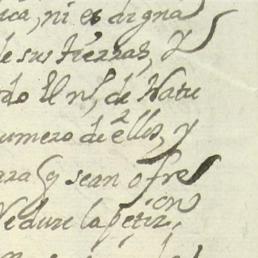 ica, ni es digna
de sus tierras, y
El nͦ, de Natu
numero de ellos, y
q sean ofre
cion
Redure la petiz,